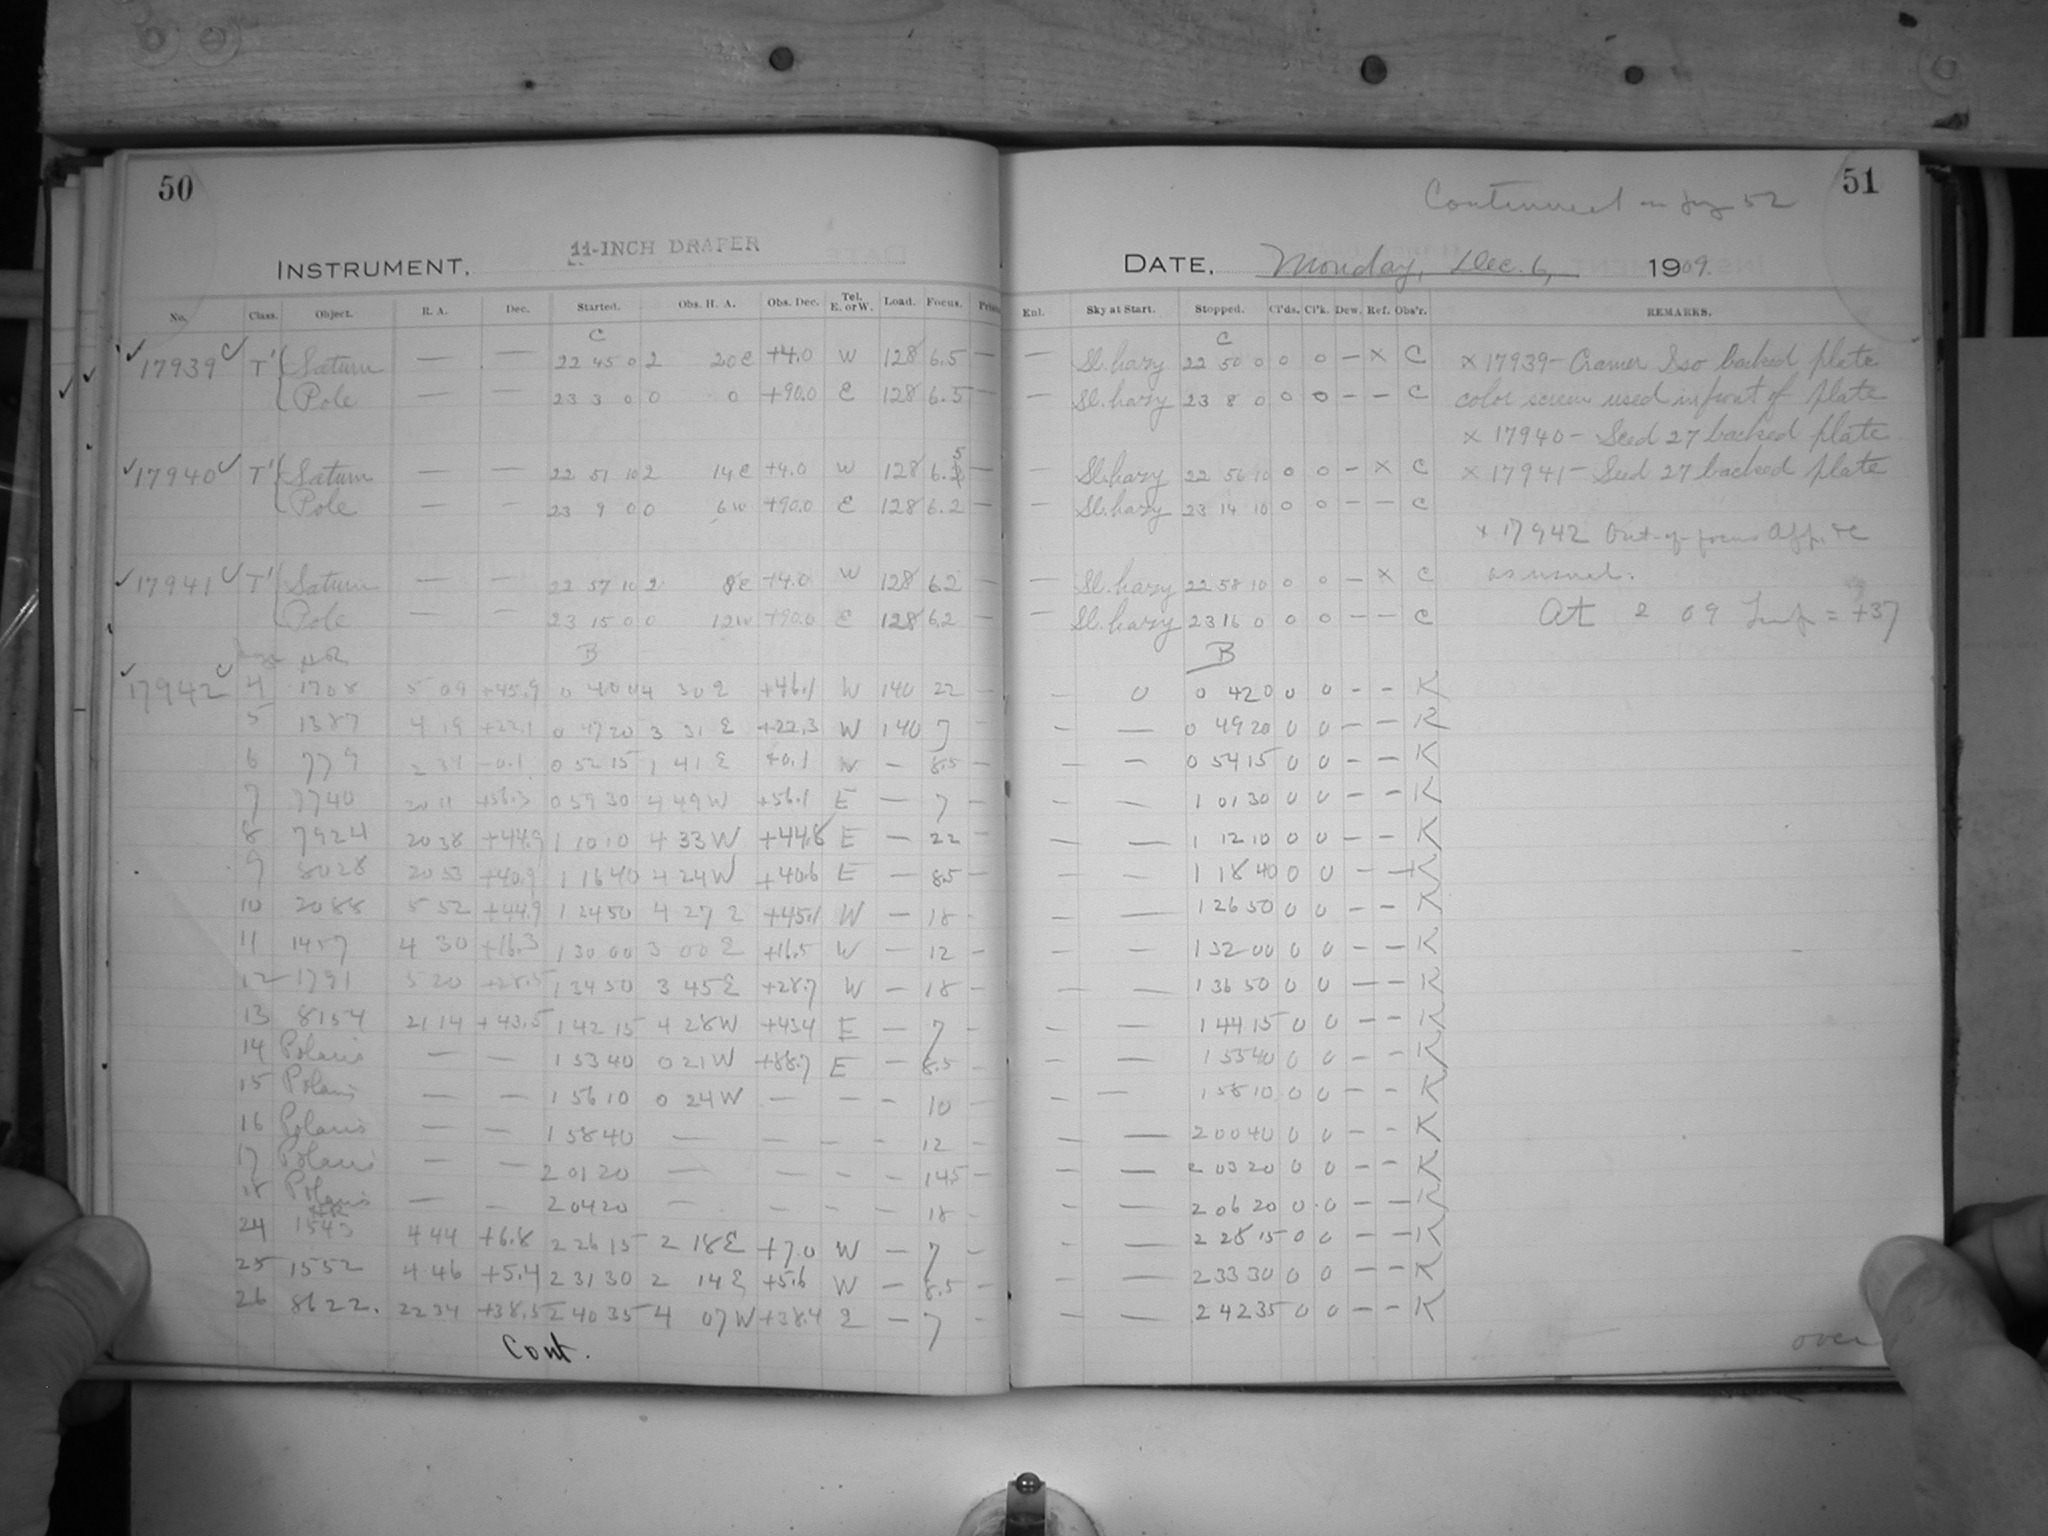 50
INSTRUMENT, 11-INCH DRAPER
No. Class. Object. R. A. Dec. Started. Obs. H. A. Obs. Dec. Tel. E. or W. Load. Focus.
C
17939 T' Saturn — — 22 45 0 2 20 E +4.0 W 128 6.5 —
Pole — — 23 3 0 0 0 +90.0 E 128 6.5 —
17940 T' Saturn — — 22 51 10 2 14 E +4.0 W 128 6.5 —
Pole — — 23 9 0 0 6 W +90.0 E 128 6.2 —
17941 T' Saturn — — 22 57 10 2 8 E +4.0 W 128 6.2
Pole — — 23 15 0 0 12 W +90.0 E 128 6.2 —
HR B
17942 4 1708 5 09 +45.9 0 40 0 4 30 E +46.1 W 140 22 —
5 1387 4 19 +22.1 0 47 20 3 31 E +22.3 W 140 7
6 779 2 34 -0.1 0 52 15 1 41 E +0.1 W — 8.5 —
7 7740 20 11 +56.3 0 59 30 4 49 W +56.1 E — 7 —
8 7924 20 38 +44.9 1 10 10 4 33 W +44.8 E — 22 —
9 8028 20 53 +40.9 1 16 40 4 24 W +40.6 E — 8.5 —
10 2088 5 52 +44.9 1 24 50 4 27 E +45.1 W — 18 —
11 1457 4 30 +16.3 1 30 00 3 00 E +16.5 W — 12 —
12 1791 5 20 +28.5 1 34 50 3 45 E +28.7 W — 18 —
13 8154 21 14 +43.5 1 42 15 4 28 W +43.4 E — 7 —
14 Polaris — — 1 53 40 0 21 W +88.7 E — 8.5 —
15 Polaris — — 1 56 10 0 24 W — — — 10 —
16 Polaris — — 1 58 40 — — — — 12
17 Polaris — — 2 01 20 — — — — 14.5 —
18 Polaris — — 2 04 20 — — — — 18 —
HR
24 1543 4 44 +6.8 2 26 15 2 18 E +7.0 W — 7 —
25 1552 4 46 +5.4 2 31 30 2 14 E +5.6 W — 8.5 —
26 8622. 22 34 +38.5 2 40 35 4 07 W +38.4 E — 7 —
Cont.
51
Continued on pg 52
DATE, Monday, Dec. 6, 1909.
Enl. Sky at Start. Stopped. Cl'ds. Cl'k. Dew. Ref. Obs'r. REMARKS.
C
— Sl. hazy 22 50 0 0 0 — × C × 17939 - Cramer Iso backed plate
— Sl. hazy 23 8 0 0 0 — — C color screen used in front of plate
× 17940 - Seed 27 backed plate
— Sl. hazy 22 56 10 0 0 — × C × 17941 - Seed 27 backed plate
— Sl. hazy 23 14 10 0 0 — — C
× 17942 Out-of-focus App. &c
— Sl. hazy 22 58 10 0 0 — × C as usual.
— Sl. hazy 23 16 0 0 0 — — C At 2 09 Temp = +37
B
— 0 0 42 0 0 0 — — K
— — 0 49 20 0 0 — — K
— — 0 54 15 0 0 — — K
— — 1 01 30 0 0 — — K
— — 1 12 10 0 0 — — K
— — 1 18 40 0 0 — — K
— — 1 26 50 0 0 — — K
— — 1 32 00 0 0 — — K
— — 1 36 50 0 0 — — K
— — 1 44 15 0 0 — — K
— — 1 55 40 0 0 — — K
— — 1 58 10 0 0 — — K
— — 2 00 40 0 0 — — K
— — 2 03 20 0 0 — — K
— — 2 06 20 0 0 — — K
— — 2 28 15 0 0 — — K
— — 2 33 30 0 0 — — K
— — 2 42 35 0 0 — — K
over